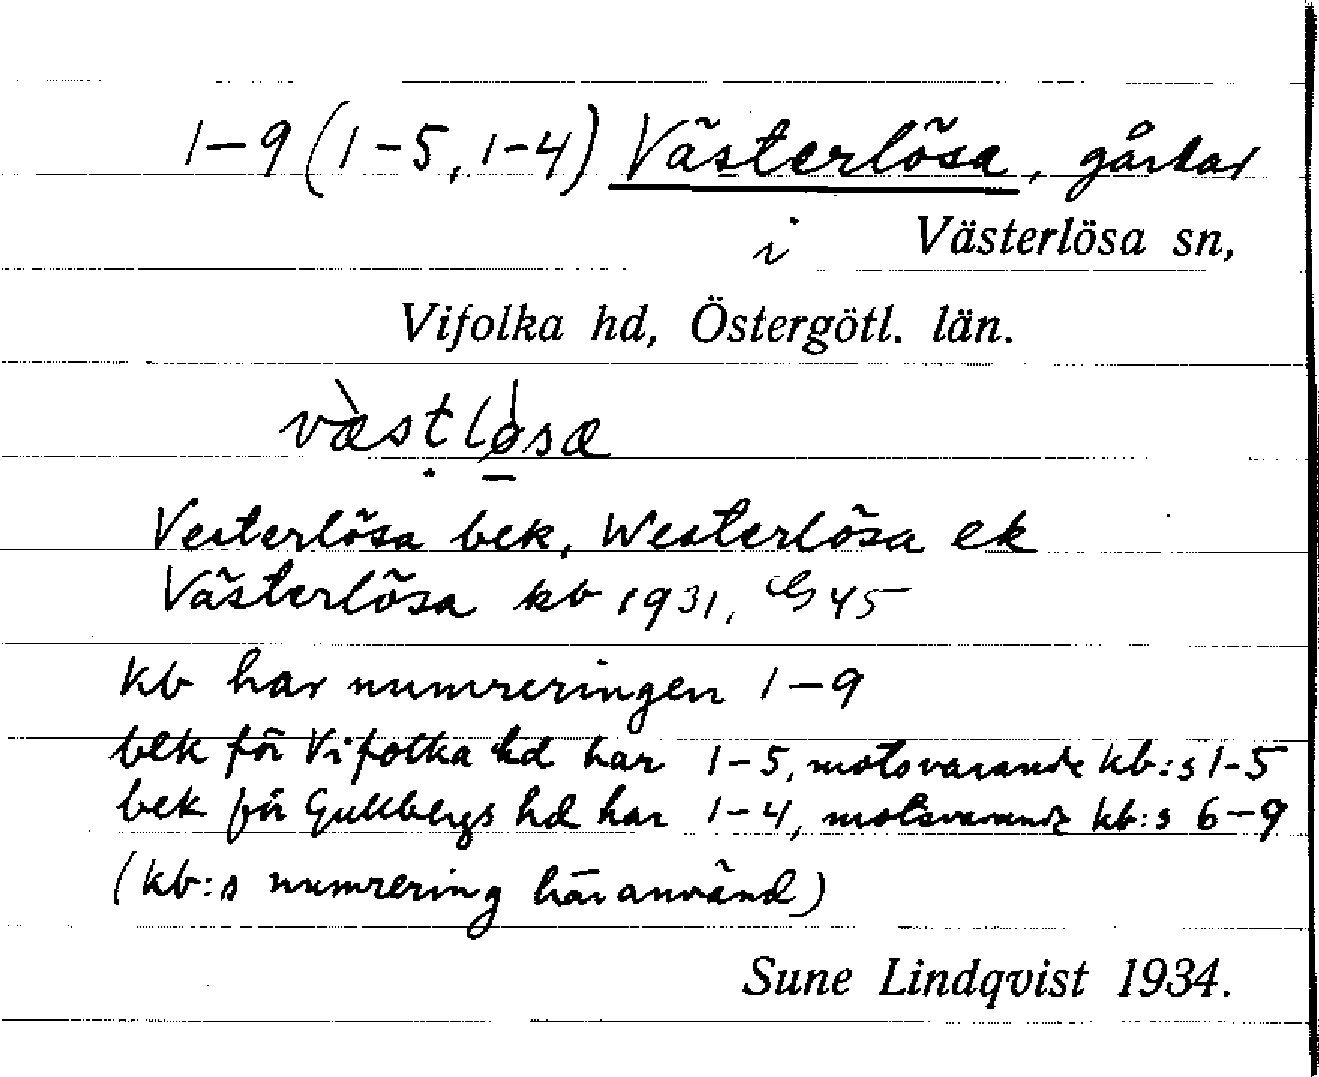 1–9 (1–5, 1–4) Västerlösa, gårdar
i Västerlösa sn,
Vifolka hd, Östergötl. län.
væ̀stlø̀sa
Vesterlösa bek, Westerlösa ek
Västerlösa kb 1931, G 45
kb har numreringen 1–9
bek för Vifolka hd har 1–5, motsvarande kb:s 1–5
bek för Gullbergs hd har 1–4, motsvarande kb:s 6–9
(kb:s numrering här använd)
Sune Lindqvist 1934.